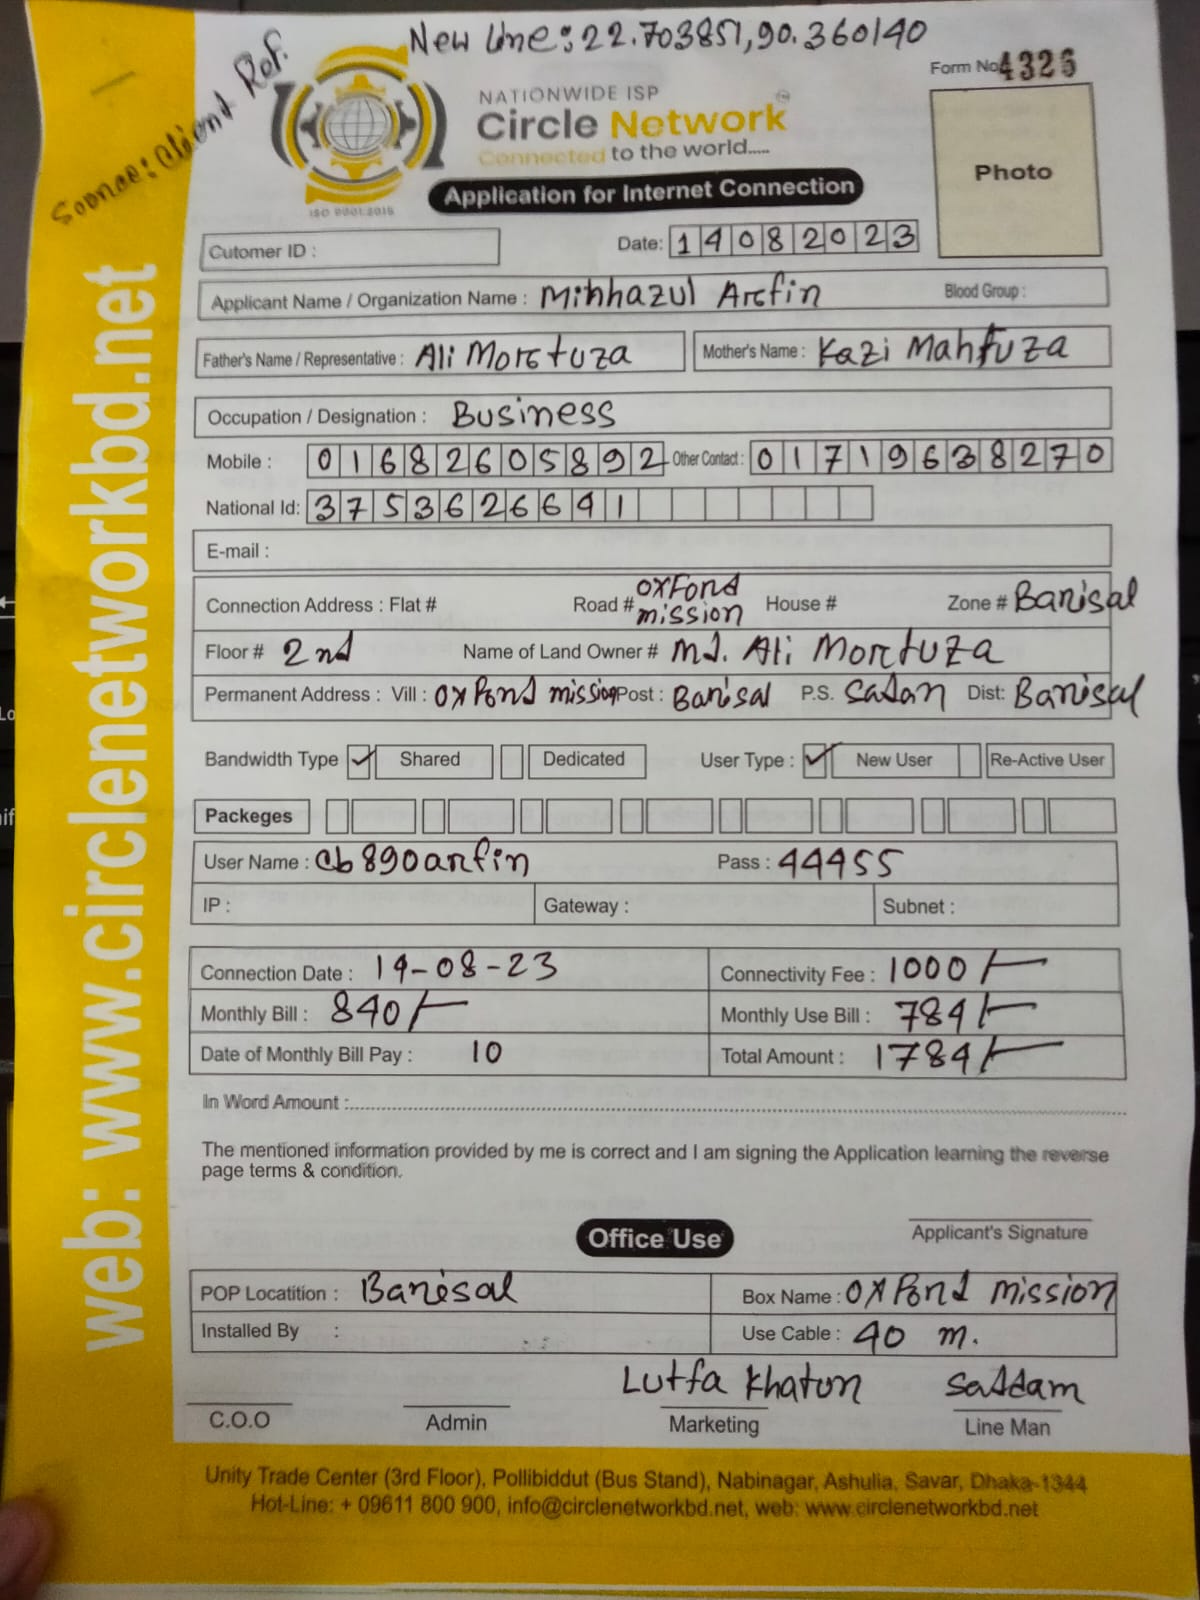 New Line: 22.703851,90.360140
Source: Client Ref.
Form No 4326
NATIONWIDE ISP
Circle Network
Connected to the world.....
ISO 9001:2015
Application for Internet Connection
Photo
Cutomer ID :
Date: 14082023
Applicant Name / Organization Name : Minhazul Arefin Blood Group :
Father's Name / Representative : Ali Mortuza Mother's Name : Kazi Mahfuza
Occupation / Designation : Business
Mobile : 01682605892 Other Contact : 01719638270
National Id: 3753626641
E-mail :
Connection Address : Flat # Road # Oxford mission House # Zone # Barisal
Floor # 2nd Name of Land Owner # Md. Ali Mortuza
Permanent Address : Vill : Oxford mission Post : Barisal P.S. Sadar Dist: Barisal
Bandwidth Type ✓ Shared Dedicated User Type : ✓ New User Re-Active User
Packeges
User Name : cb890arfin Pass : 44455
IP : Gateway : Subnet :
Connection Date : 14-08-23 Connectivity Fee : 1000/-
Monthly Bill : 840/- Monthly Use Bill : 784/-
Date of Monthly Bill Pay : 10 Total Amount : 1784/-
In Word Amount :
The mentioned information provided by me is correct and I am signing the Application learning the reverse
page terms & condition.
Applicant's Signature
Office Use
POP Locatition : Barisal Box Name : Oxford mission
Installed By : Use Cable : 40 m.
Lutfa Khatun Saddam
C.O.O Admin Marketing Line Man
Unity Trade Center (3rd Floor), Pollibiddut (Bus Stand), Nabinagar, Ashulia, Savar, Dhaka-1344
Hot-Line: + 09611 800 900, info@circlenetworkbd.net, web: www.circlenetworkbd.net
web: www.circlenetworkbd.net